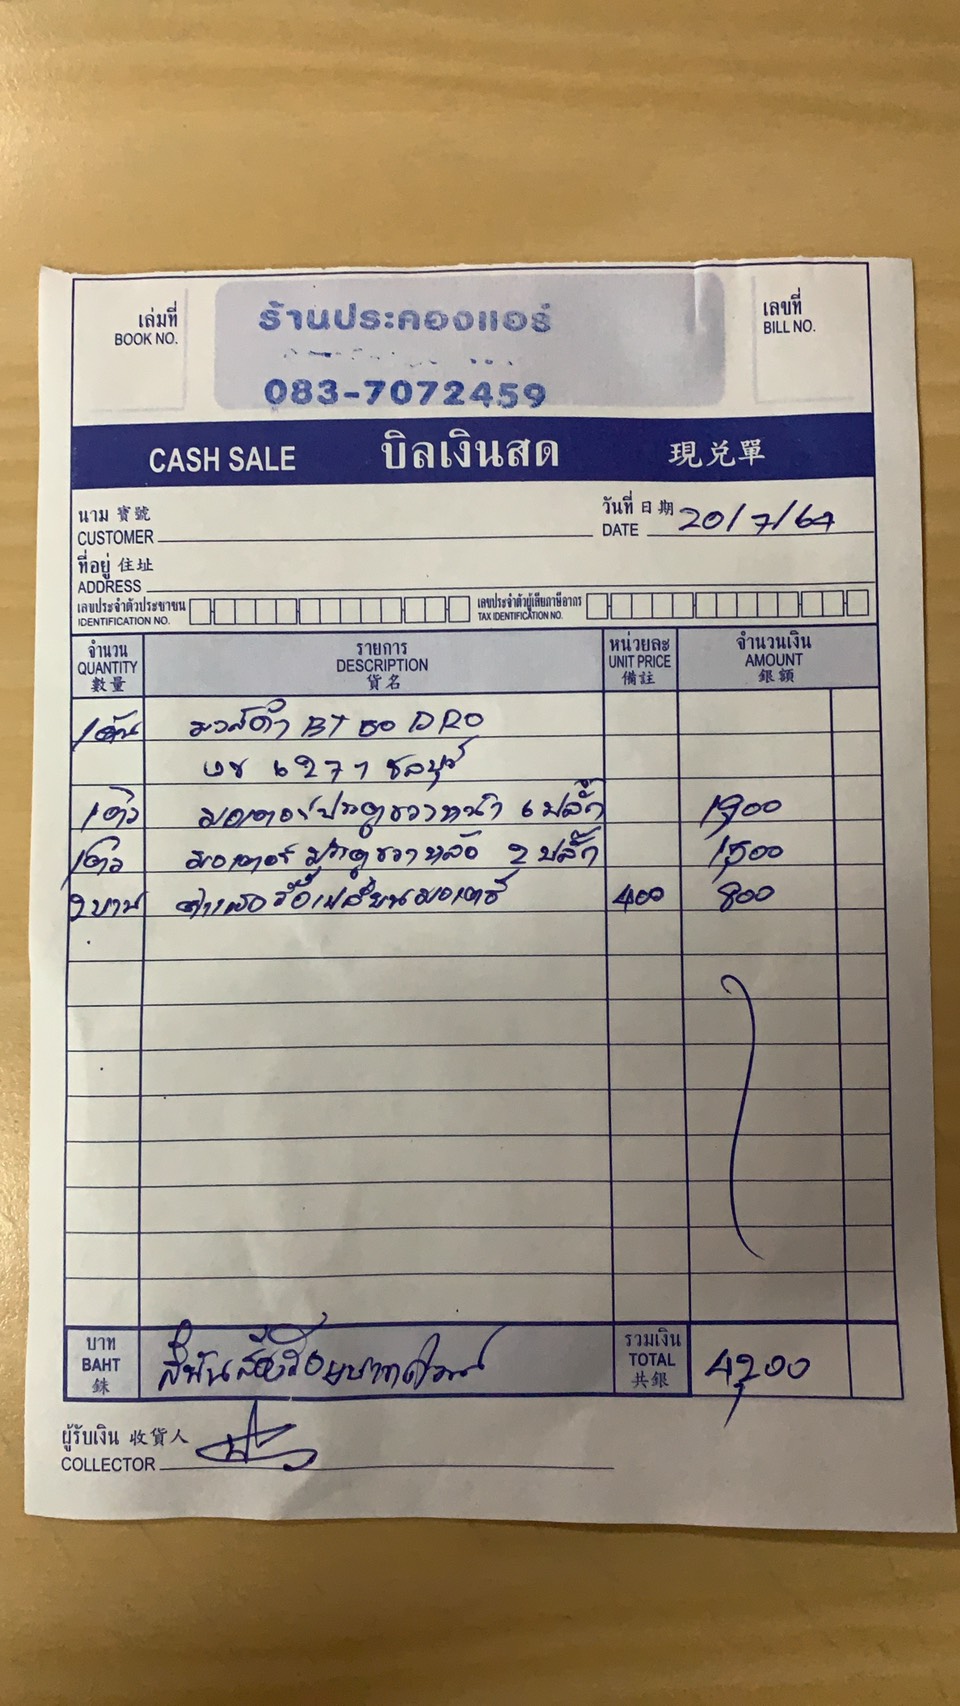 เล่มที่
BOOK NO.
ร้านประคองแอร์
083-7072459
เลขที่
BILL NO.
CASH SALE บิลเงินสด 現兑單
นาม 寳號
CUSTOMER
วันที่ 日期
DATE 20/7/64
ที่อยู่ 住址
ADDRESS
เลขประจำตัวประชาชน
IDENTIFICATION NO.
เลขประจำตัวผู้เสียภาษีอากร
TAX IDENTIFICATION NO.
จำนวน
QUANTITY
數量
รายการ
DESCRIPTION
貨名
หน่วยละ
UNIT PRICE
備註
จำนวนเงิน
AMOUNT
銀額
1 คัน มาสด้า BT 50 PRO
6277 ชลบุรี
1 ตัว มอเตอร์ประตูขวาหน้า 6 ปลั๊ก 1,900
1 ตัว มอเตอร์ประตูขวาหลัง 2 ปลั๊ก 1,500
2 บาน ค่าแรงรื้อเปลี่ยนมอเตอร์ 400 800
บาท
BAHT
銖
สี่พันสองร้อยบาทถ้วน
รวมเงิน
TOTAL
共銀
4,200
ผู้รับเงิน 收貨人
COLLECTOR